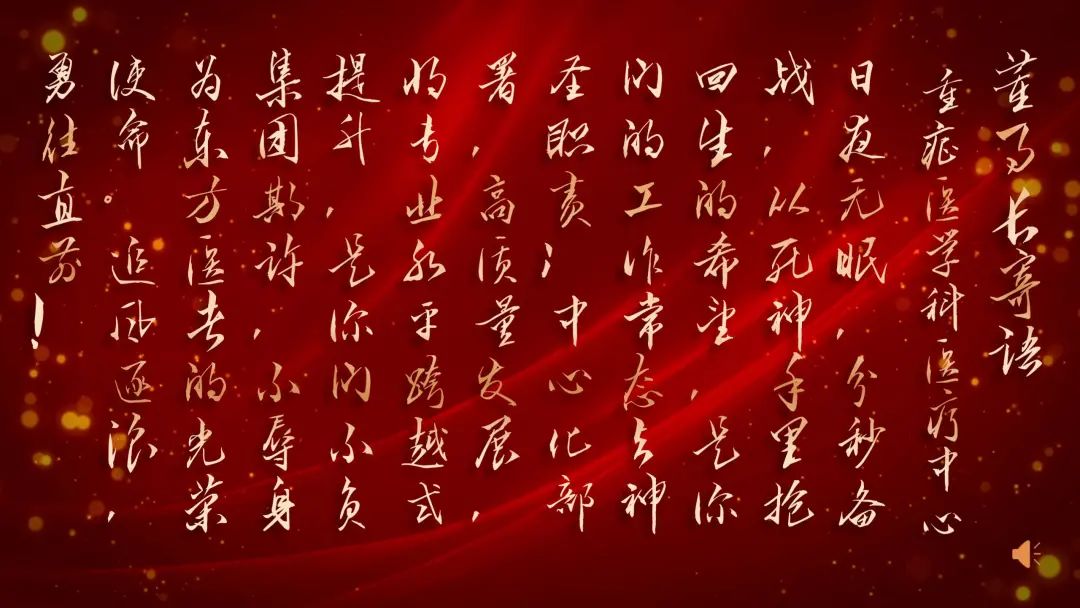 董事长寄语
重症医学科医疗中心
日夜无眠，分秒备
战，从死神手里抢
回生的希望，是你
们的工作常态与神
圣职责；中心化部
署，高质量发展，
将专业水平跨越式
提升，是你们不负
集团期许，不辱身
为东方医者的光荣
使命。追风逐浪，
勇往直前！